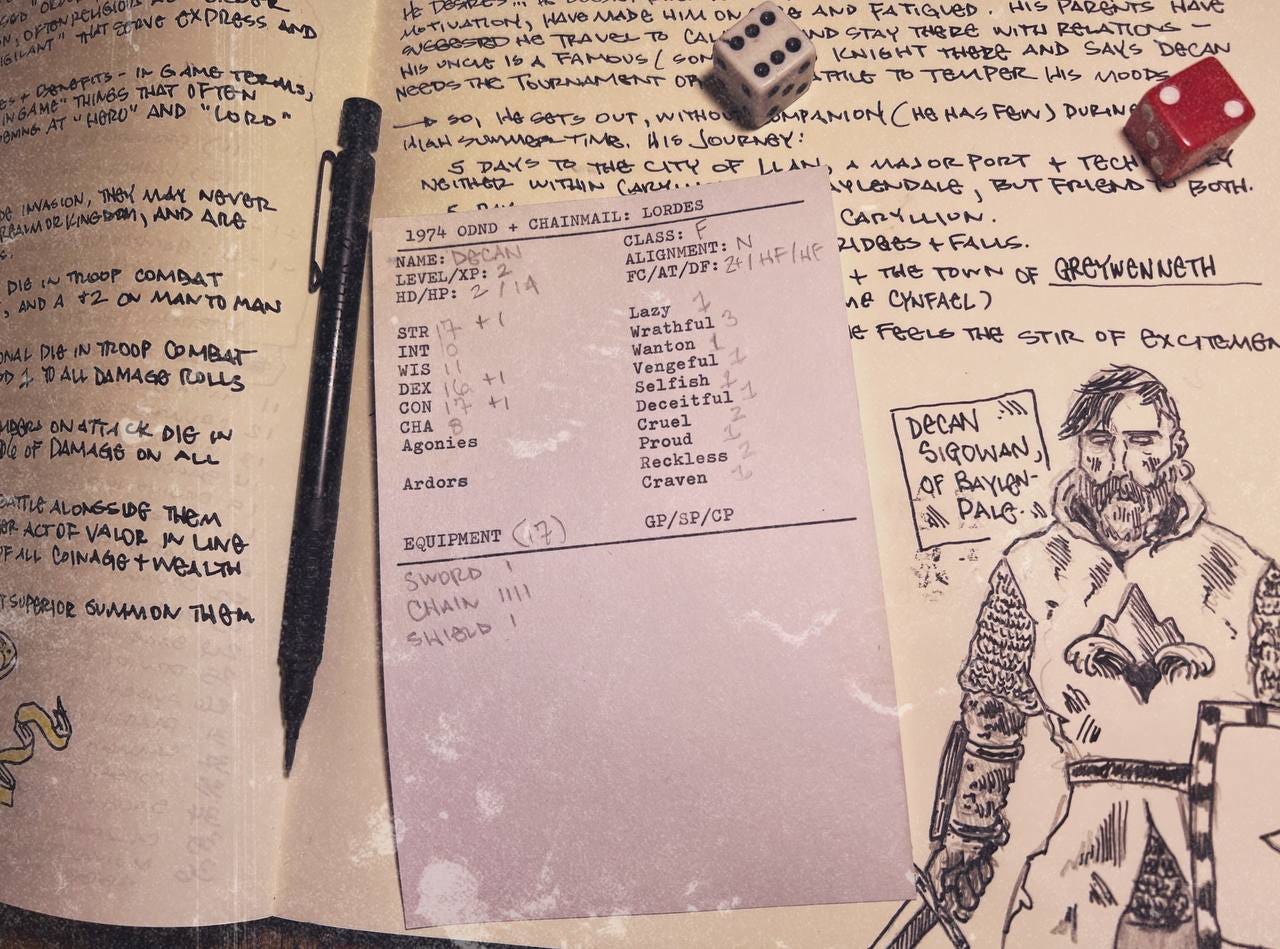 EXPRESS AND
VIGILANT" THAT SERVE
BENEFITS - IN GAME TERMS,
IN GAME" THINGS THAT OFTEN
AT "HERO" AND "LORD"
INVASION, THEY MAY NEVER
REALM OR KINGDOM, AND ARE
DIE IN TROOP COMBAT
, AND A +2 ON MAN TO MAN
DIE IN TROOP COMBAT
1 TO ALL DAMAGE ROLLS
ON ATTACK DIE IN
OF DAMAGE ON ALL
BATTLE ALONGSIDE THEM
ACT OF VALOR IN LINE
OF ALL COINAGE + WEALTH
SUPERIOR SUMMON THEM
HE DESIRES...
MOTIVATION, HAVE MADE HIM ON AND FATIGUED. HIS PARENTS HAVE
SUGGESTED HE TRAVEL TO AND STAY THERE WITH RELATIONS -
HIS UNCLE IS A FAMOUS ( KNIGHT THERE AND SAYS DECAN
NEEDS THE TOURNAMENT OR TO TEMPER HIS MOODS
→ SO, HE SETS OUT, WITHOUT COMPANION (HE HAS FEW) DURING
HIGH SUMMER-TIME. HIS JOURNEY:
5 DAYS TO THE CITY OF LLAN, A MAJOR PORT + TECH
NEITHER WITHIN BAYLENDALE, BUT FRIEND TO BOTH.
5
CARYLLION.
RIDGES + FALLS.
+ THE TOWN OF GREYWENNETH
CYNFAEL)
FEELS THE STIR OF EXCITEMEN
1974 ODND + CHAINMAIL: LORDES
NAME: DECAN CLASS: F
LEVEL/XP: 2 ALIGNMENT: N
HD/HP: 2 / 14 FC/AT/DF: 2+/HF/HF
STR 17 +1 Lazy 1
INT Wrathful 3
WIS 11 Wanton 1
DEX 16 +1 Vengeful 1
CON 17 +1 Selfish 1
CHA 8 Deceitful 1
Agonies Cruel 2
Proud 1
Reckless 2
Ardors Craven 1
EQUIPMENT (17) GP/SP/CP
SWORD I
CHAIN IIII
SHIELD I
DECAN
SIGOWAN,
OF BAYLEN-
DALE.